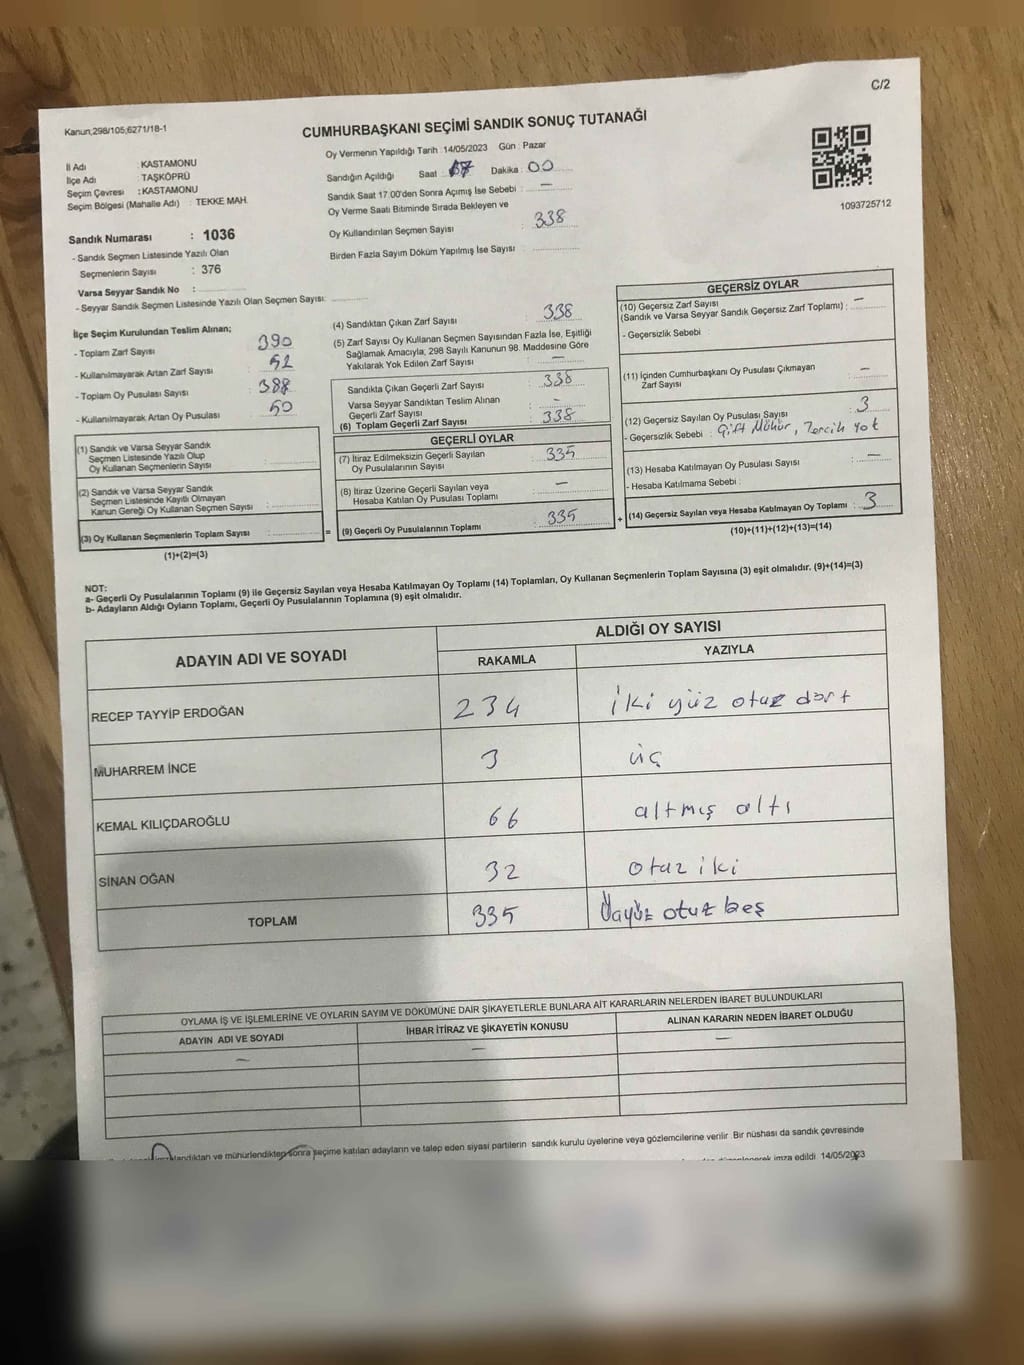 C/2
Kanun,298/105;6271/18-1
CUMHURBAŞKANI SEÇİMİ SANDIK SONUÇ TUTANAĞI
İl Adı : KASTAMONU
İlçe Adı : TAŞKÖPRÜ
Seçim Çevresi : KASTAMONU
Seçim Bölgesi (Mahalle Adı) : TEKKE MAH.
Sandık Numarası : 1036
- Sandık Seçmen Listesinde Yazılı Olan
Seçmenlerin Sayısı : 376
Varsa Seyyar Sandık No :
- Seyyar Sandık Seçmen Listesinde Yazılı Olan Seçmen Sayısı:
Oy Vermenin Yapıldığı Tarih :14/05/2023 Gün : Pazar
Sandığın Açıldığı Saat : Dakika : 00
Sandık Saat 17:00'den Sonra Açımış İse Sebebi : —
Oy Verme Saati Bitiminde Sırada Bekleyen ve
Oy Kullandırılan Seçmen Sayısı : 338
Birden Fazla Sayım Döküm Yapılmış İse Sayısı :
1093725712
İlçe Seçim Kurulundan Teslim Alınan;
- Toplam Zarf Sayısı : 390
- Kullanılmayarak Artan Zarf Sayısı : 52
- Toplam Oy Pusulası Sayısı : 388
- Kullanılmayarak Artan Oy Pusulası : 50
(1) Sandık ve Varsa Seyyar Sandık
Seçmen Listesinde Yazılı Olup
Oy Kullanan Seçmenlerin Sayısı :
(2) Sandık ve Varsa Seyyar Sandık
Seçmen Listesinde Kayıtlı Olmayan
Kanun Gereği Oy Kullanan Seçmen Sayısı :
(3) Oy Kullanan Seçmenlerin Toplam Sayısı :
(1)+(2)=(3)
(4) Sandıktan Çıkan Zarf Sayısı : 338
(5) Zarf Sayısı Oy Kullanan Seçmen Sayısından Fazla İse, Eşitliği
Sağlamak Amacıyla, 298 Sayılı Kanunun 98. Maddesine Göre
Yakılarak Yok Edilen Zarf Sayısı : —
Sandıkta Çıkan Geçerli Zarf Sayısı : 338
Varsa Seyyar Sandıktan Teslim Alınan
Geçerli Zarf Sayısı : -
(6) Toplam Geçerli Zarf Sayısı : 338
GEÇERLİ OYLAR
(7) İtiraz Edilmeksizin Geçerli Sayılan
Oy Pusulalarının Sayısı : 335
(8) İtiraz Üzerine Geçerli Sayılan veya
Hesaba Katılan Oy Pusulası Toplamı : —
= (9) Geçerli Oy Pusulalarının Toplamı : 335 +
GEÇERSİZ OYLAR
(10) Geçersiz Zarf Sayısı
(Sandık ve Varsa Seyyar Sandık Geçersiz Zarf Toplamı) : —
- Geçersizlik Sebebi :
(11) İçinden Cumhurbaşkanı Oy Pusulası Çıkmayan
Zarf Sayısı : —
(12) Geçersiz Sayılan Oy Pusulası Sayısı : 3
- Geçersizlik Sebebi : Çift Mühür, Tercih Yok
(13) Hesaba Katılmayan Oy Pusulası Sayısı : —
- Hesaba Katılmama Sebebi :
(14) Geçersiz Sayılan veya Hesaba Katılmayan Oy Toplamı : 3
(10)+(11)+(12)+(13)=(14)
NOT:
a- Geçerli Oy Pusulalarının Toplamı (9) ile Geçersiz Sayılan veya Hesaba Katılmayan Oy Toplamı (14) Toplamları, Oy Kullanan Seçmenlerin Toplam Sayısına (3) eşit olmalıdır. (9)+(14)=(3)
b- Adayların Aldığı Oyların Toplamı, Geçerli Oy Pusulalarının Toplamına (9) eşit olmalıdır.
ADAYIN ADI VE SOYADI
ALDIĞI OY SAYISI
RAKAMLA YAZIYLA
RECEP TAYYİP ERDOĞAN 234 iki yüz otuz dört
MUHARREM İNCE 3 üç
KEMAL KILIÇDAROĞLU 66 altmış altı
SİNAN OĞAN 32 otuz iki
TOPLAM 335 Üçyüz otuz beş
OYLAMA İŞ VE İŞLEMLERİNE VE OYLARIN SAYIM VE DÖKÜMÜNE DAİR ŞİKAYETLERLE BUNLARA AİT KARARLARIN NELERDEN İBARET BULUNDUKLARI
ADAYIN ADI VE SOYADI İHBAR İTİRAZ VE ŞİKAYETİN KONUSU ALINAN KARARIN NEDEN İBARET OLDUĞU
— — —
mühürlendikten sonra seçime katılan adayların ve talep eden siyasi partilerin sandık kurulu üyelerine veya gözlemcilerine verilir. Bir nüshası da sandık çevresinde
imza edildi. 14/05/2023